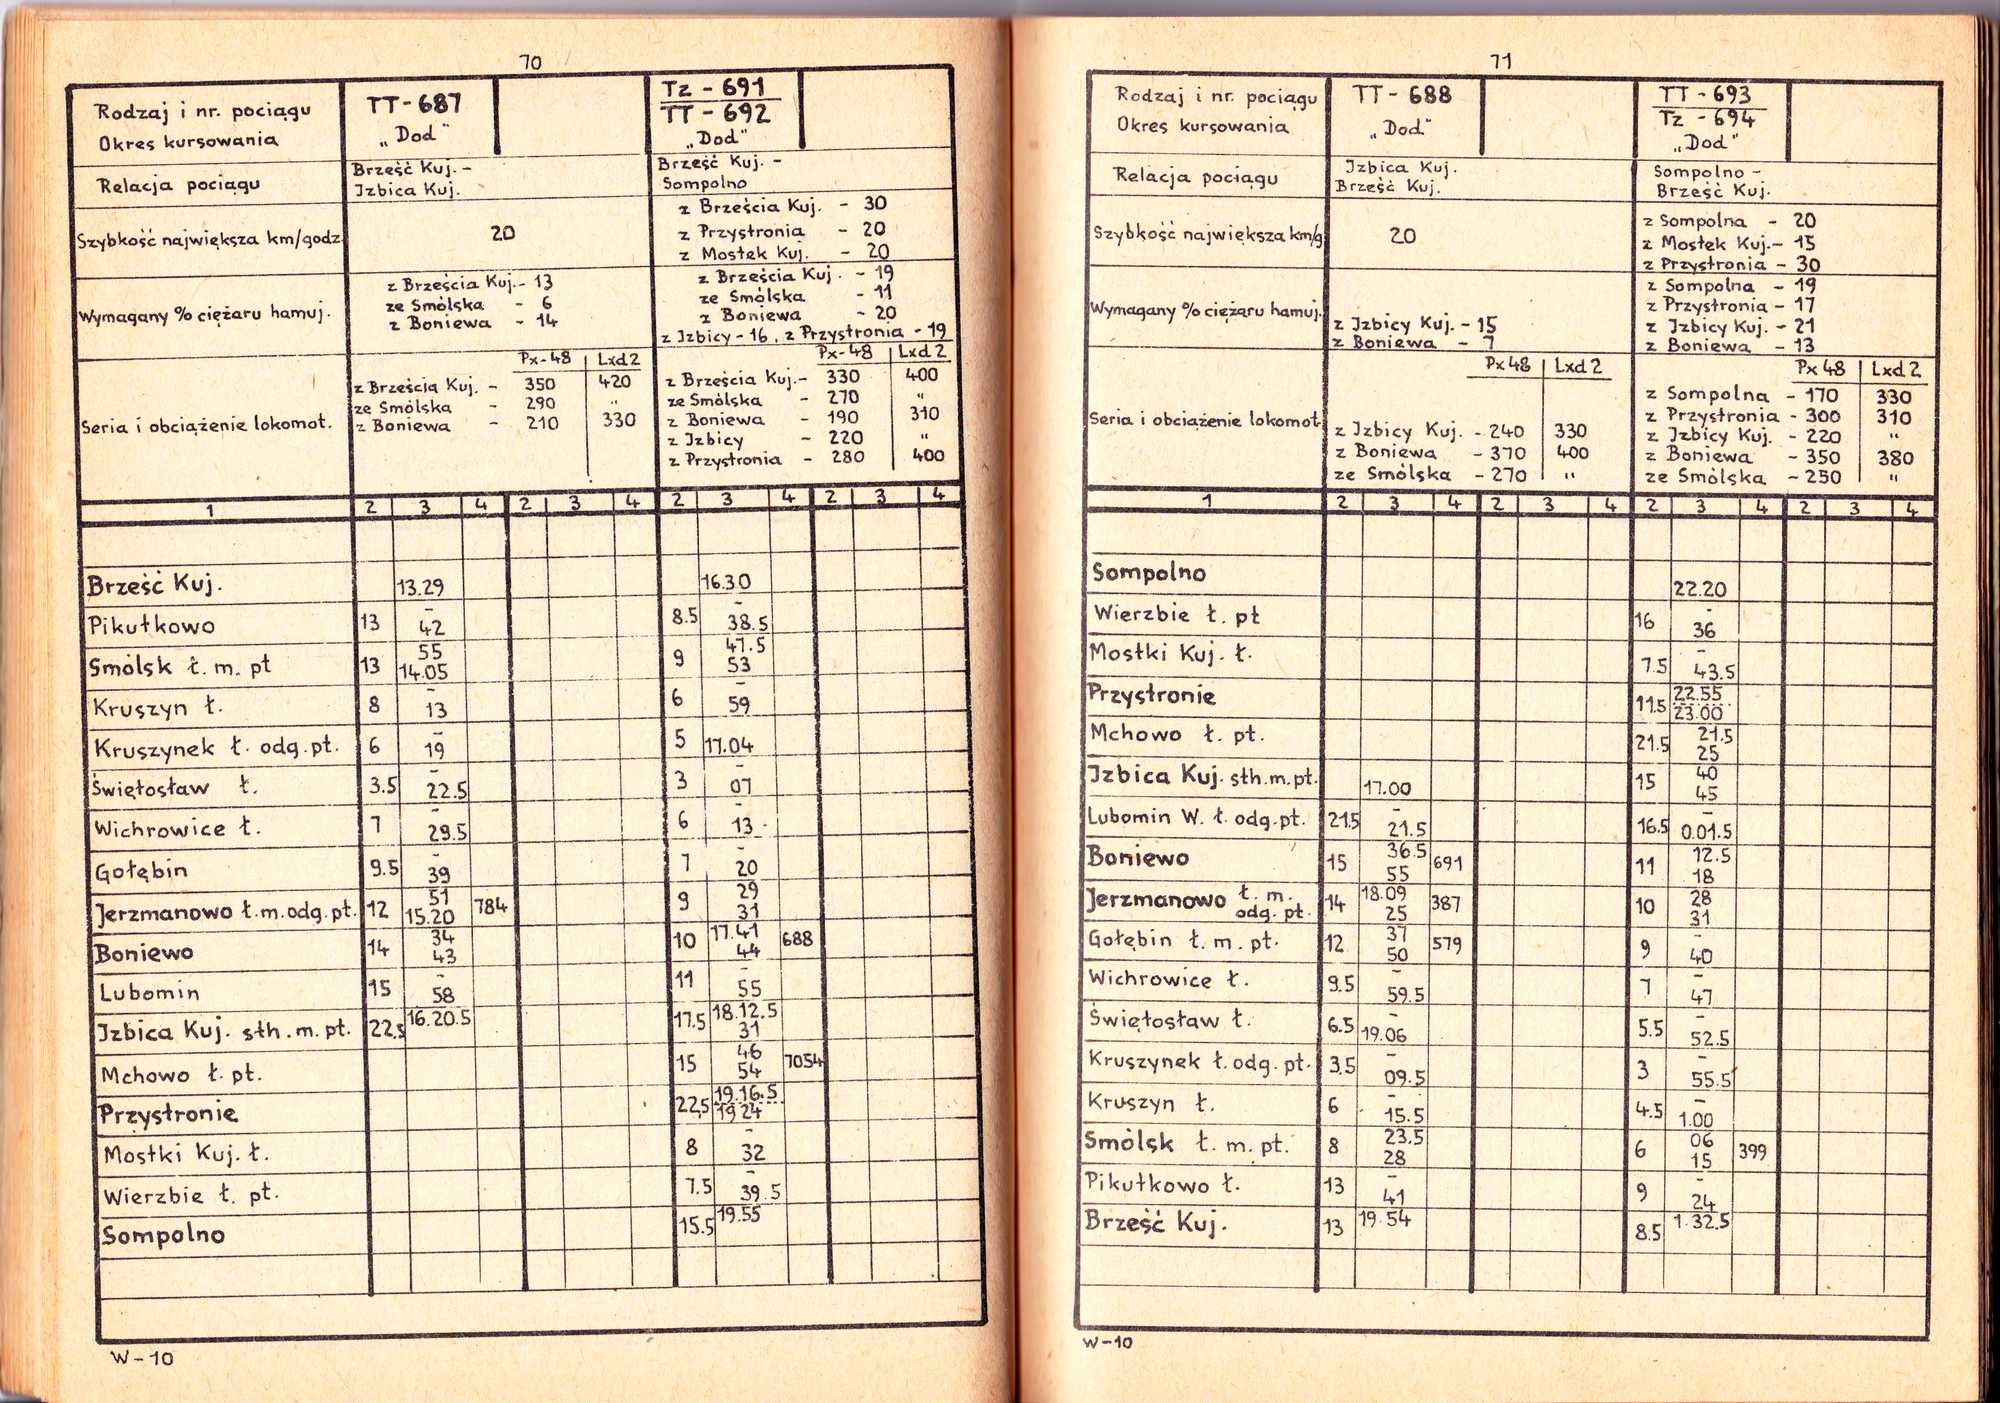 70
Rodzaj i nr. pociągu
Okres kursowania
TT-687
„Dod"
Tz - 691
TT - 692
„Dod"
Relacja pociągu
Brześć Kuj. -
Izbica Kuj.
Brześć Kuj. -
Sompolno
Szybkość największa km/godz
20
z Brześcia Kuj. - 30
z Przystronia - 20
z Mostek Kuj. - 20
Wymagany % ciężaru hamuj.
z Brześcia Kuj. - 13
ze Smólska - 6
z Boniewa - 14
z Brześcia Kuj. - 19
ze Smólska - 11
z Boniewa - 20
z Izbicy - 16, z Przystronia - 19
Seria i obciążenie lokomot.
Px-48 Lxd2
z Brześcia Kuj. - 350 420
ze Smólska - 290 "
z Boniewa - 210 330
Px-48 Lxd2
z Brześcia Kuj. - 330 400
ze Smólska - 270 "
z Boniewa - 190 310
z Izbicy - 220 "
z Przystronia - 280 400
1 2 3 4 2 3 4 2 3 4 2 3 4
Brześć Kuj. 13.29 16.30
Pikutkowo 13 – 42 8.5 – 38.5
Smólsk ł. m. pt 13 55 14.05 9 47.5 53
Kruszyn ł. 8 – 13 6 – 59
Kruszynek ł. odg. pt. 6 – 19 5 17.04
Świętosław ł. 3.5 – 22.5 3 – 07
Wichrowice ł. 7 – 29.5 6 – 13
Gołębin 9.5 – 39 7 – 20
Jerzmanowo ł. m. odg. pt. 12 51 15.20 784 9 29 31
Boniewo 14 34 43 10 17.41 44 688
Lubomin 15 – 58 11 – 55
Izbica Kuj. sth. m. pt. 22.5 16.20.5 17.5 18.12.5 31
Mchowo ł. pt. 15 46 54 7054
Przystronie 22.5 19.16.5 19 24
Mostki Kuj. ł. 8 – 32
Wierzbie ł. pt. 7.5 – 39.5
Sompolno 15.5 19.55
W-10
71
Rodzaj i nr. pociągu
Okres kursowania
TT - 688
„Dod"
TT - 693
Tz - 694
„Dod"
Relacja pociągu
Izbica Kuj.
Brześć Kuj.
Sompolno -
Brześć Kuj.
Szybkość największa km/g
20
z Sompolna - 20
z Mostek Kuj. - 15
z Przystronia - 30
Wymagany % ciężaru hamuj.
z Izbicy Kuj. - 15
z Boniewa - 7
z Sompolna - 19
z Przystronia - 17
z Izbicy Kuj. - 21
z Boniewa - 13
Seria i obciążenie lokomot
Px 48 Lxd 2
z Izbicy Kuj. - 240 330
z Boniewa - 370 400
ze Smólska - 270 "
Px 48 Lxd 2
z Sompolna - 170 330
z Przystronia - 300 310
z Izbicy Kuj. - 220 "
z Boniewa - 350 380
ze Smólska - 250 "
1 2 3 4 2 3 4 2 3 4 2 3 4
Sompolno 22.20
Wierzbie ł. pt 16 – 36
Mostki Kuj. ł. 7.5 – 43.5
Przystronie 11.5 22.55 23.00
Mchowo ł. pt. 21.5 21.5 25
Izbica Kuj. sth. m. pt. 17.00 15 40 45
Lubomin W. ł. odg. pt. 21.5 – 21.5 16.5 – 0.01.5
Boniewo 15 36.5 55 691 11 12.5 18
Jerzmanowo ł. m. odg. pt. 14 18.09 25 387 10 28 31
Gołębin ł. m. pt. 12 37 50 579 9 – 40
Wichrowice ł. 9.5 – 59.5 7 – 47
Świętosław ł. 6.5 – 19.06 5.5 – 52.5
Kruszynek ł. odg. pt. 3.5 – 09.5 3 – 55.5
Kruszyn ł. 6 – 15.5 4.5 – 1.00
Smólsk ł. m. pt. 8 23.5 28 6 06 15 399
Pikutkowo ł. 13 – 41 9 – 24
Brześć Kuj. 13 19.54 8.5 1.32.5
W-10